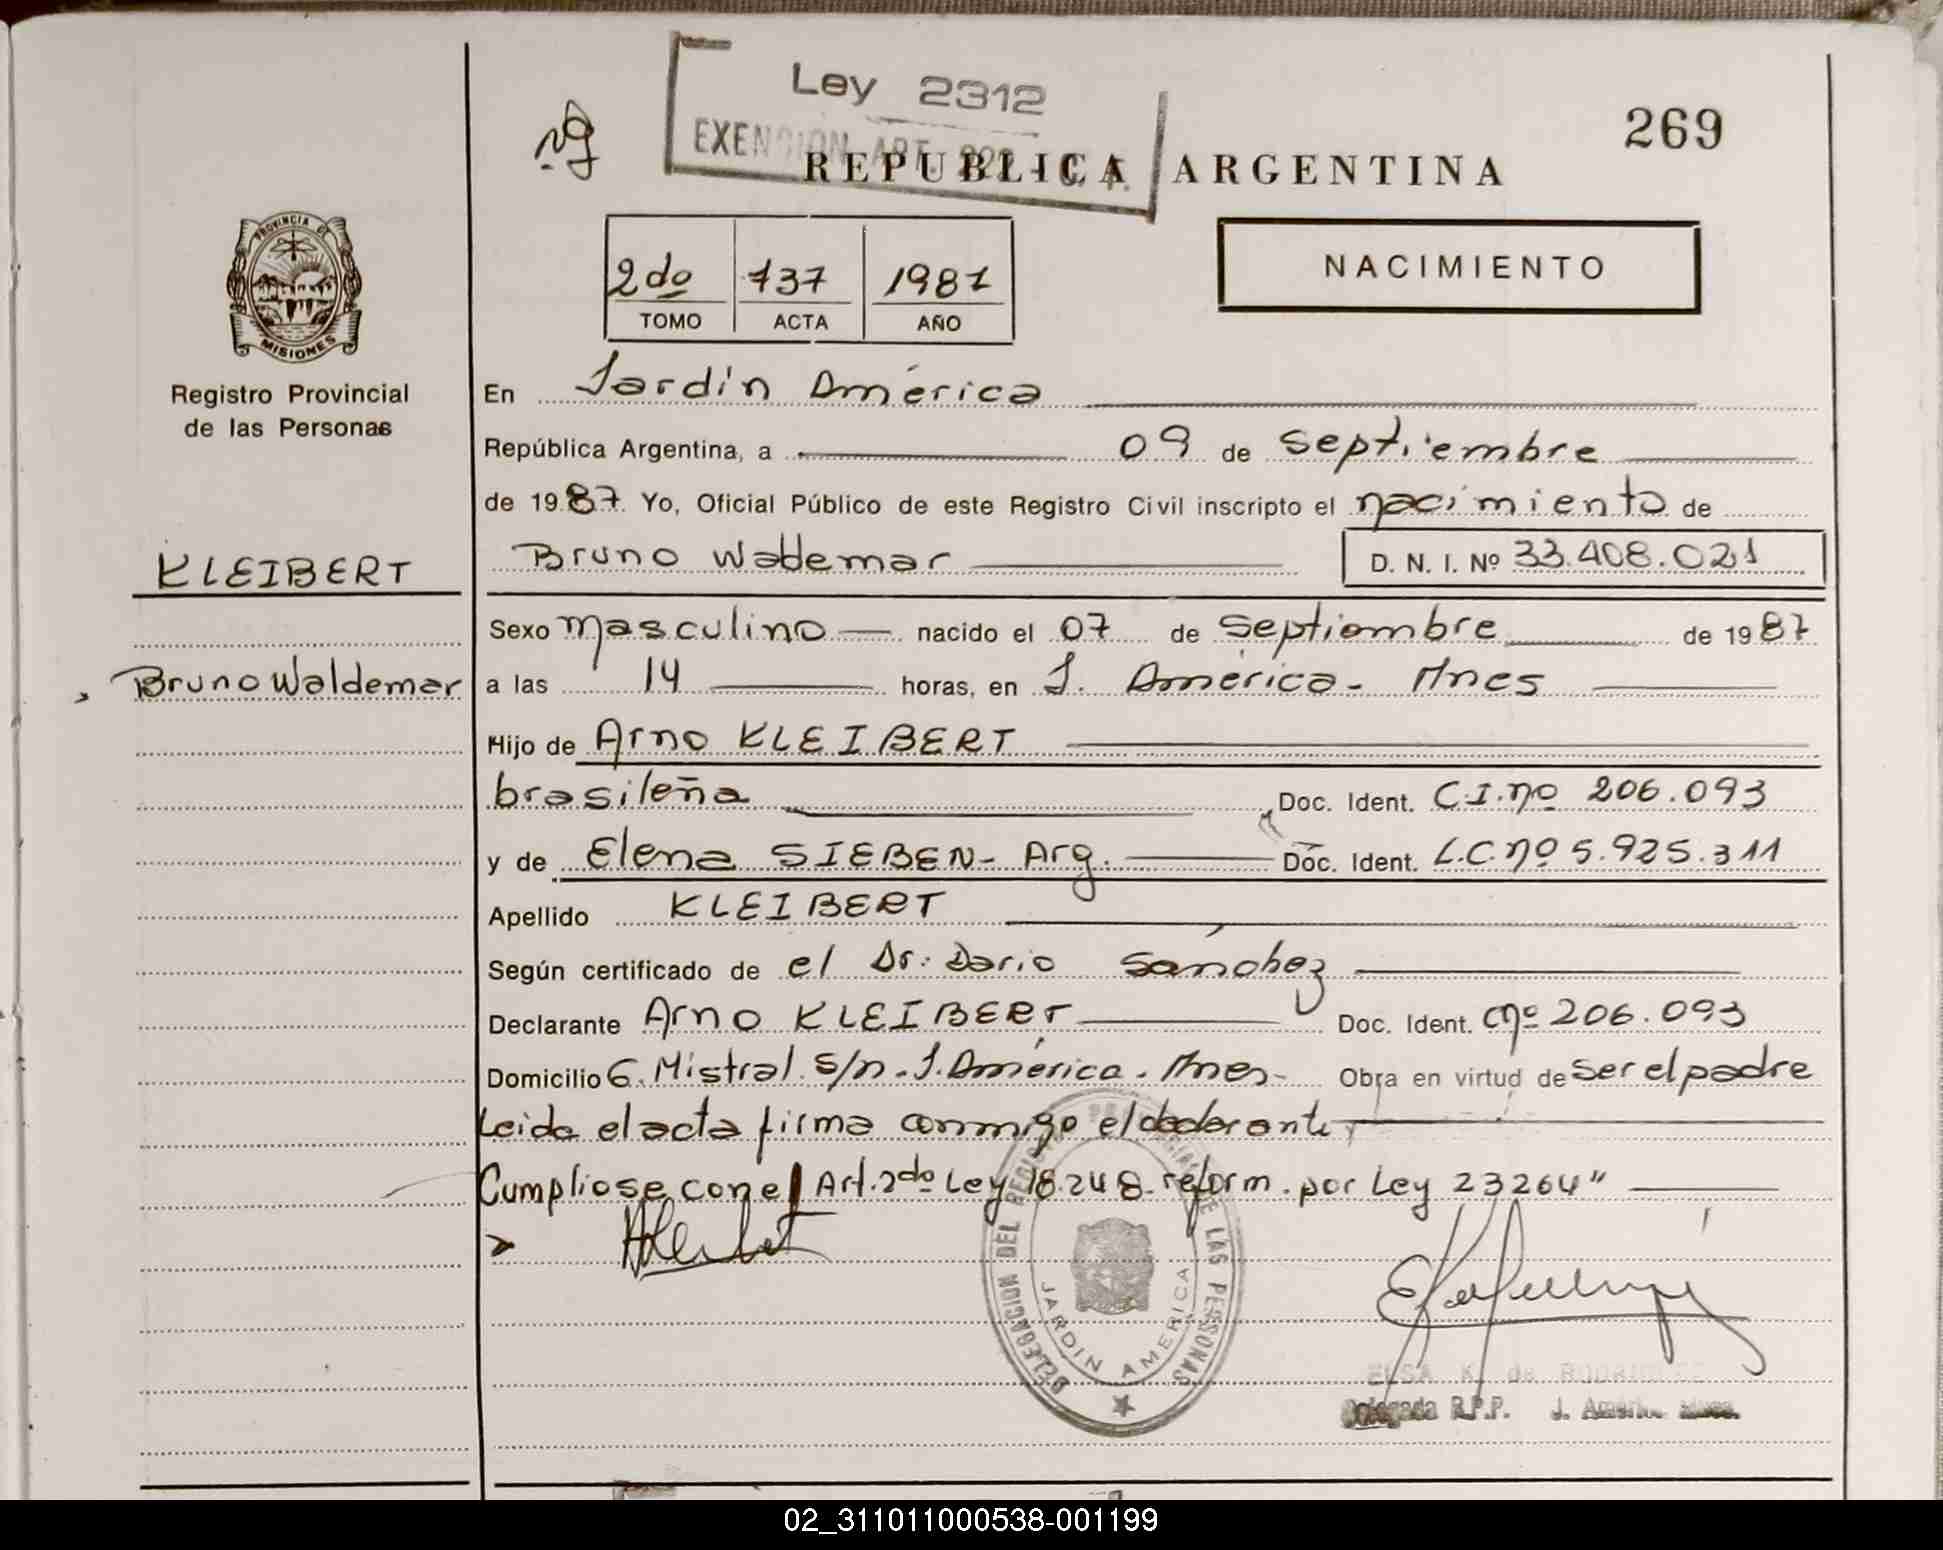 Ley 2312
269
REPUBLICA ARGENTINA
PROVINCIA DE
MISIONES
Registro Provincial
de las Personas
NACIMIENTO
2do 737 1987
TOMO ACTA AÑO
En Jardín América
República Argentina, a 09 de Septiembre
de 1987 Yo, Oficial Público de este Registro Civil inscripto el nacimiento de
KLEIBERT
Bruno Waldemar D. N. I. Nº 33.408.021
Sexo masculino nacido el 07 de Septiembre de 1987
Bruno Waldemar
a las 14 horas, en J. América - Mnes
Hijo de Arno KLEIBERT
brasileña Doc. Ident. C.I. nº 206.093
y de Elena SIEBEN - Arg. Doc. Ident. L.C. nº 5.925.311
Apellido KLEIBERT
Según certificado de el Dr. Dario Sánchez
Declarante Arno KLEIBERT Doc. Ident. nº 206.093
Domicilio G. Mistral s/n. J. América. Mnes- Obra en virtud de ser el padre
Leida el acta firma conmigo el declarante
Cumpliose con el Art. 2do Ley 18.248 reform. por Ley 23264"
DELEGACION DEL REGISTRO PROVINCIAL DE LAS PERSONAS
JARDIN AMERICA
ELSA K. de RODRIGUEZ
Delegada R.P.P. J. América Mnes.
02_311011000538-001199